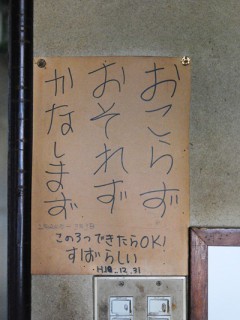 おこらず
おそれず
かなしまず
この3つできたらOK!
すばらしい
H18.12.31